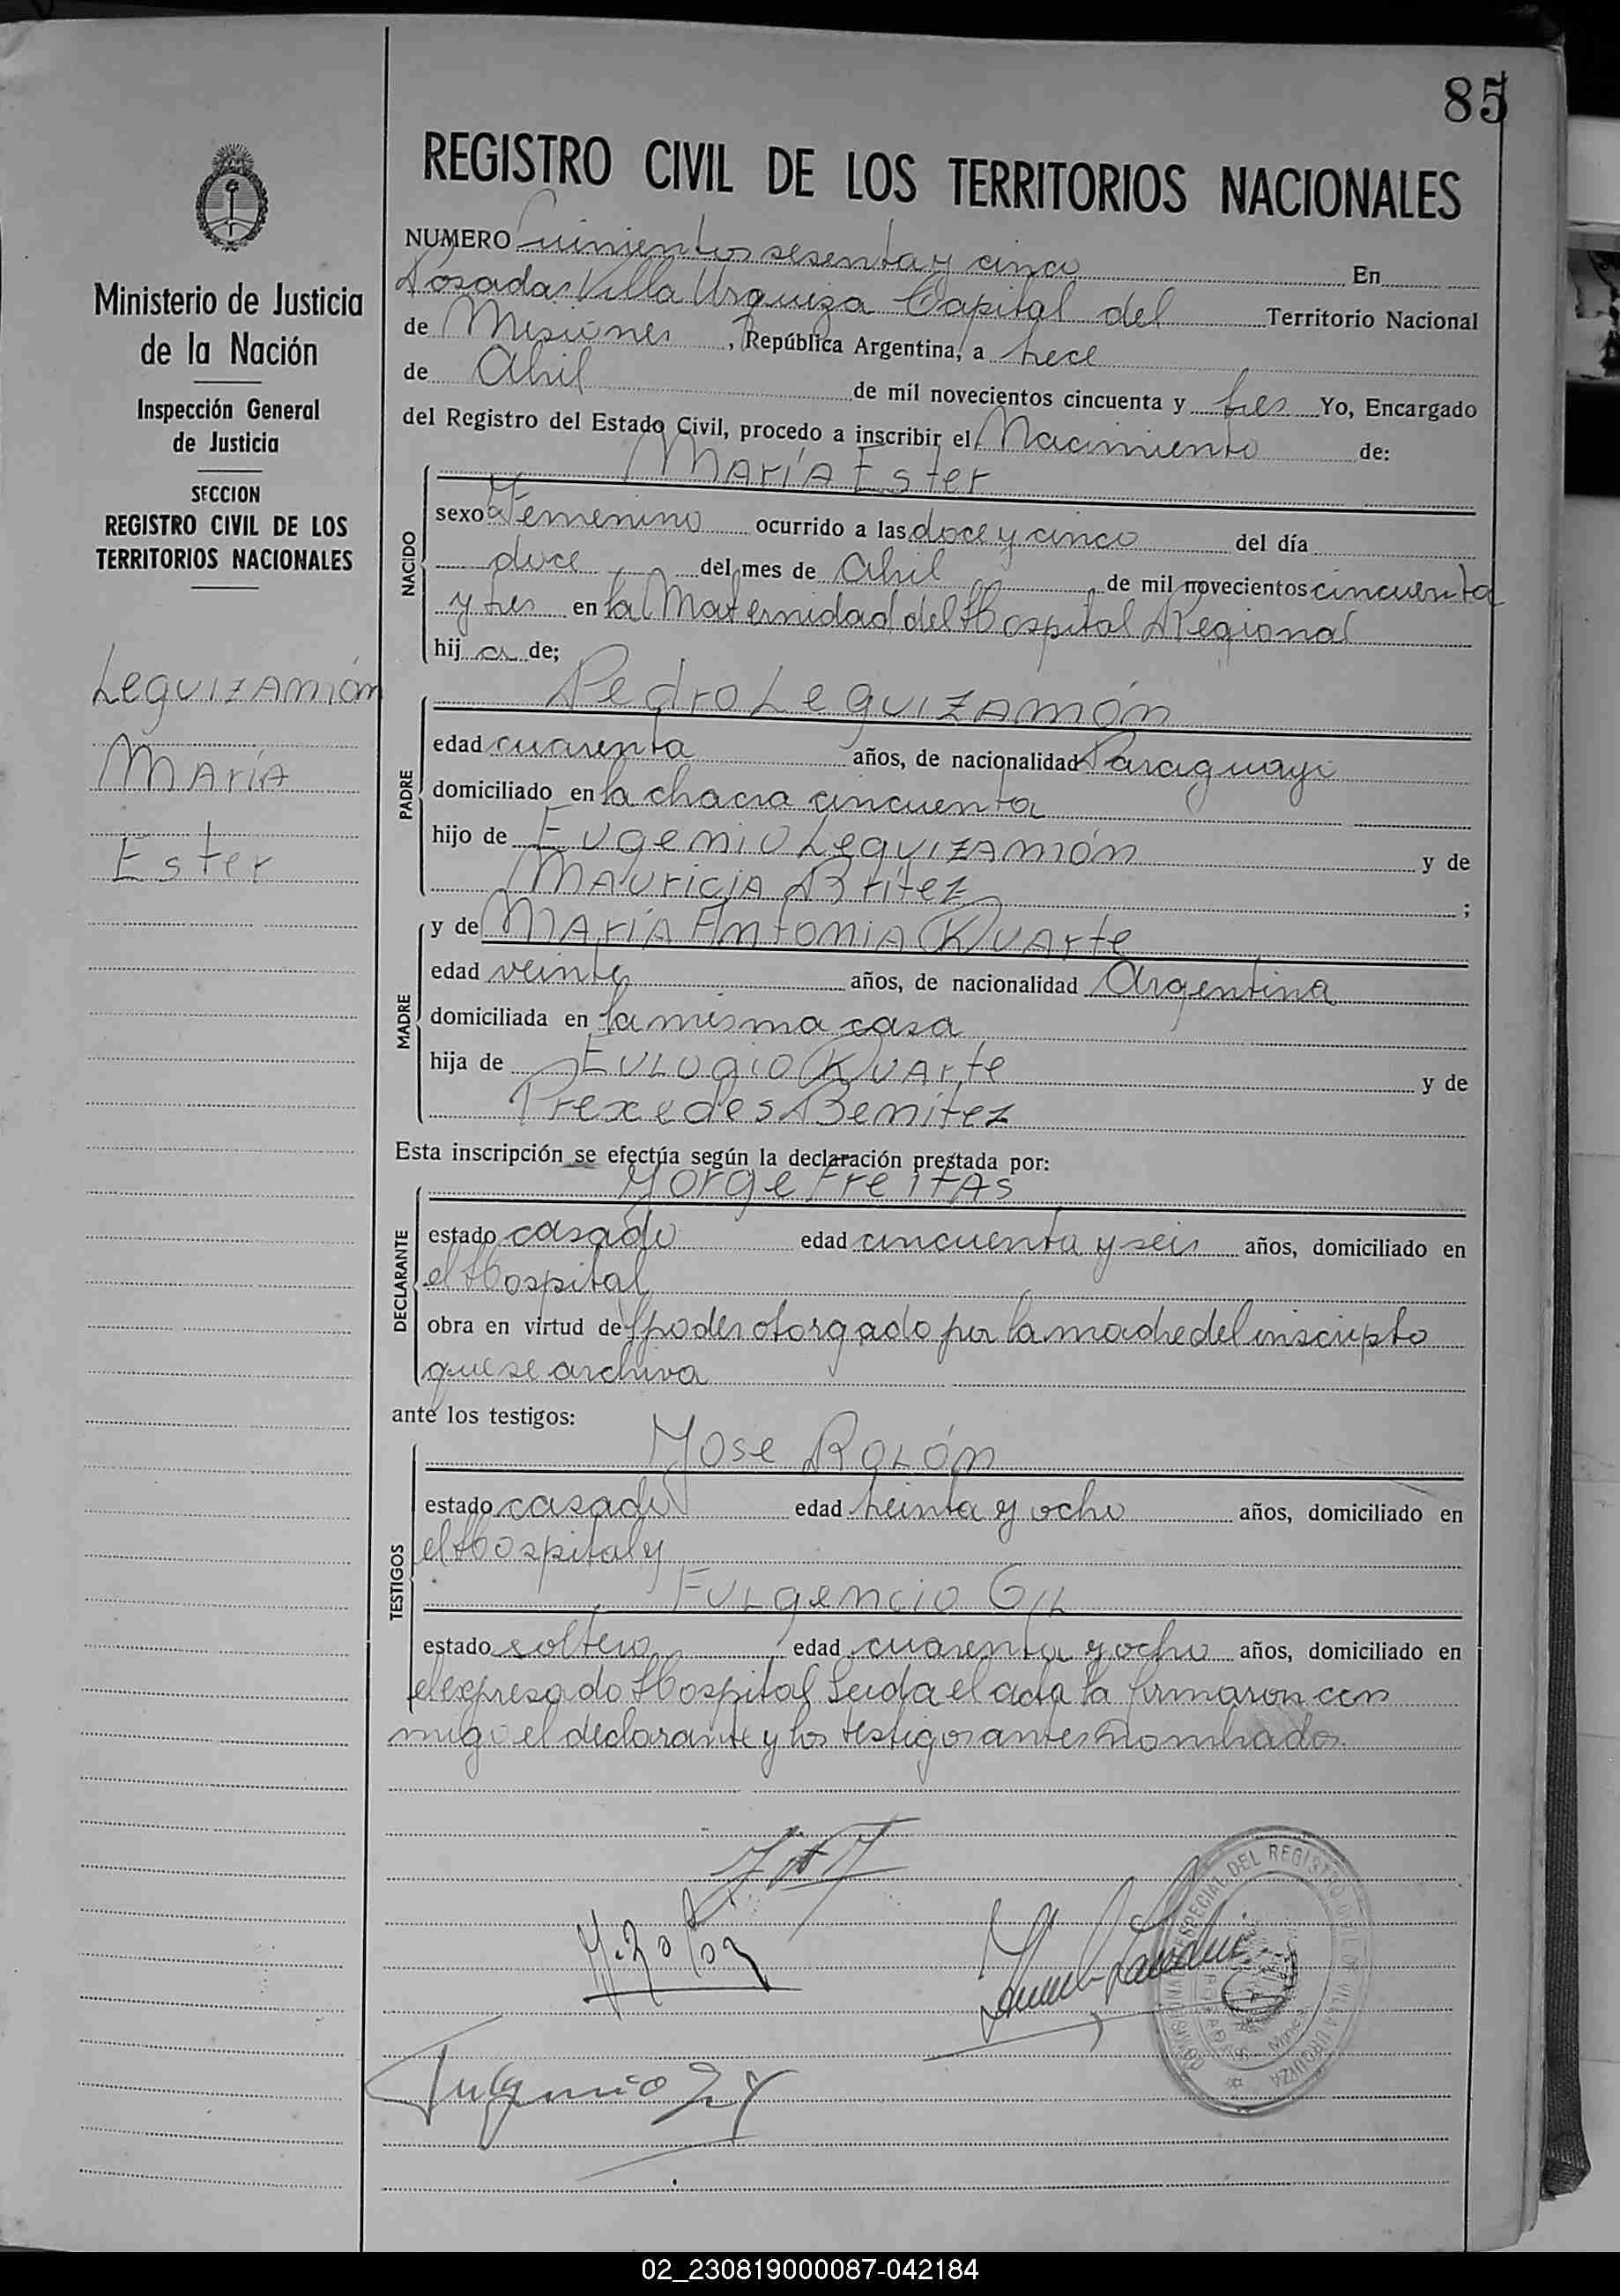 85
REGISTRO CIVIL DE LOS TERRITORIOS NACIONALES
Ministerio de Justicia
de la Nación
Inspección General
de Justicia
SECCION
REGISTRO CIVIL DE LOS
TERRITORIOS NACIONALES
Leguizamón
María
Ester
NUMERO Quinientos sesenta y cinco En
Posadas Villa Urquiza Capital del Territorio Nacional
de Misiones, República Argentina, a trece
de Abril de mil novecientos cincuenta y tres Yo, Encargado
del Registro del Estado Civil, procedo a inscribir el Nacimiento de:
María Ester
NACIDO
sexo Femenino ocurrido a las doce y cinco del día
doce del mes de Abril de mil novecientos cincuenta
y tres en la Maternidad del Hospital Regional
hij a de;
Pedro Leguizamón
PADRE
edad cuarenta años, de nacionalidad Paraguayo
domiciliado en la chacra cincuenta
hijo de Eugenio Leguizamón y de
Mauricia Britez ;
y de María Antonia Duarte
MADRE
edad veinte años, de nacionalidad Argentina
domiciliada en la misma casa
hija de Eulogio Duarte y de
Prexedes Benítez
Esta inscripción se efectúa según la declaración prestada por:
Jorge Freitas
DECLARANTE
estado casado edad cincuenta y seis años, domiciliado en
el Hospital
obra en virtud del poder otorgado por la madre del inscripto
que se archiva
ante los testigos:
Jose Rolón
TESTIGOS
estado casado edad treinta y ocho años, domiciliado en
el Hospital y
Fulgencio Gil
estado soltero edad cuarenta y ocho años, domiciliado en
el expresado Hospital Leida el acta la firmaron con
migo el declarante y los testigos antes nombrados
J. Rolon
ESPECIAL DEL REGISTRO CIVIL DE VILLA URQUIZA
POSADAS Misiones
02_230819000087-042184